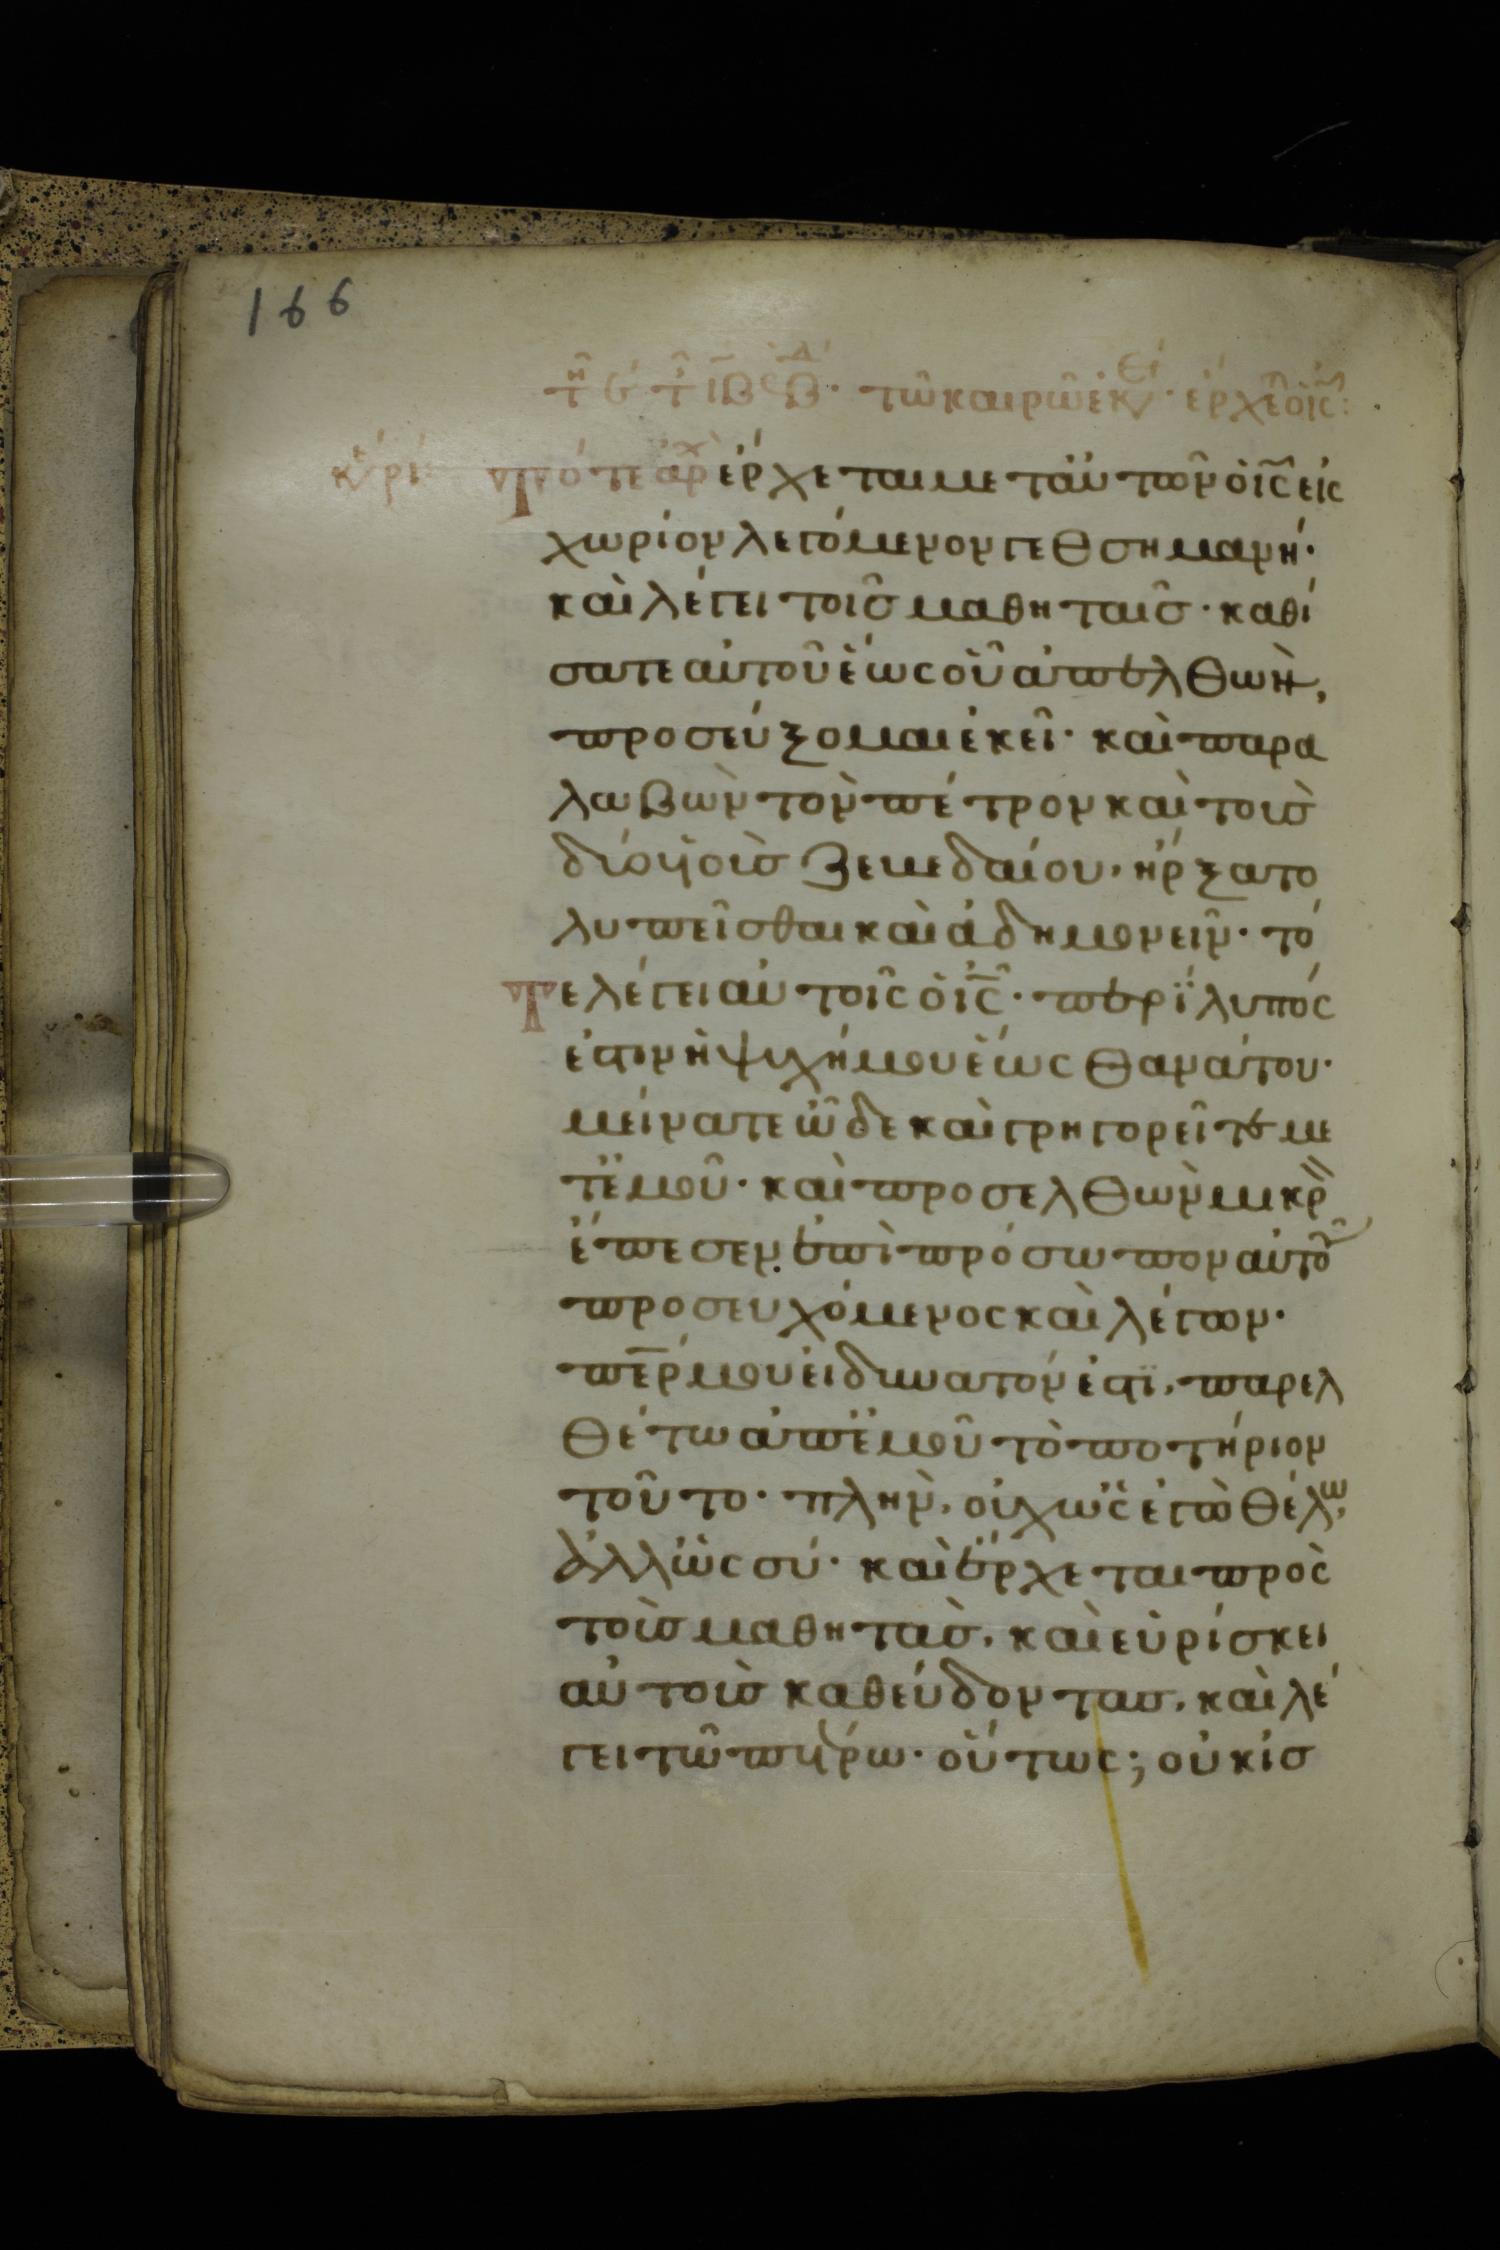 166
τότε ἔρχεται μετ αὐτῶν ὁ ις εἰς
χωρίον λεγόμενον γεθσημανή·
καὶ λέγει τοῖς μαθηταῖς· καθί
σατε αὐτοῦ ἕως οὗ ἀπελθὼν,
προσεύξομαι ἐκεῖ· καὶ παρα
λαβὼν τὸν πέτρον καὶ τοὺς
δύο υἱοὺς ζεβεδαίου, ἤρξατο
λυπεῖσθαι καὶ ἀδημονεῖν· τό
τε λέγει αὐτοῖς ὁ ις· περίλυπός
ἐστιν ἡ ψυχή μου ἕως θανάτου·
μείνατε ὧδε καὶ γρηγορεῖτε με
τ ἐμοῦ· καὶ προσελθὼν μικρ
ἔπεσεν ἐπὶ πρόσωπον αὐτοῦ
προσευχόμενος καὶ λέγων·
περ μου εἰ δυνατόν ἐστι, παρελ
θέτω ἀπ ἐμοῦ τὸ ποτήριον
τοῦτο· πλὴν, οὐχ ὡς ἐγὼ θέλω,
ἀλλ ὡς σύ· καὶ ἔρχεται πρὸς
τοὺς μαθητὰς, καὶ εὑρίσκει
αὐτοὺς καθεύδοντας, καὶ λέ
γει τῶ πέτρω· οὕτως; οὐκ ἰσ